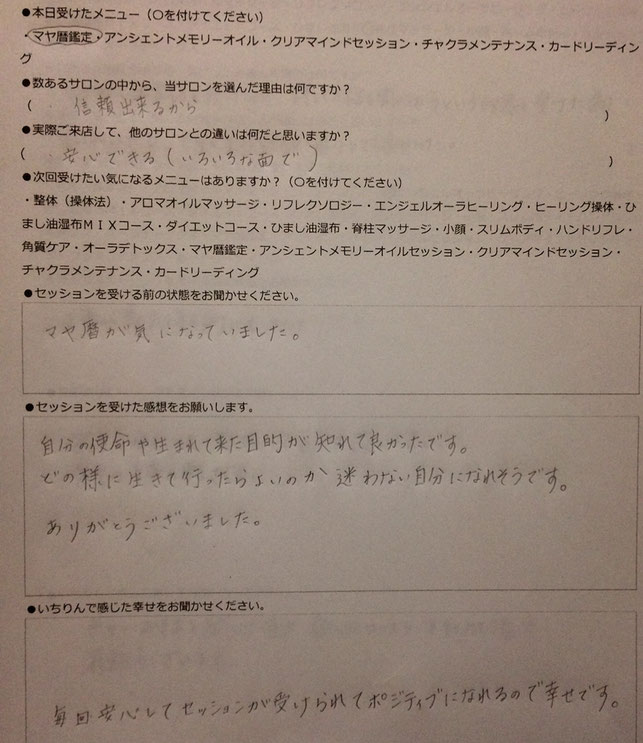 ●本日受けたメニュー（○を付けてください）
・マヤ暦鑑定・アンシェントメモリーオイル・クリアマインドセッション・チャクラメンテナンス・カードリーディン
グ
●数あるサロンの中から、当サロンを選んだ理由は何ですか？
（ ・信頼出来るから ）
●実際ご来店して、他のサロンとの違いは何だと思いますか？
（ ・安心できる（いろいろな面で） ）
●次回受けたい気になるメニューはありますか？（○を付けてください）
・整体（操体法）・アロマオイルマッサージ・リフレクソロジー・エンジェルオーラヒーリング・ヒーリング操体・ひ
まし油湿布ＭＩＸコース・ダイエットコース・ひまし油湿布・脊柱マッサージ・小顔・スリムボディ・ハンドリフレ・
角質ケア・オーラデトックス・マヤ暦鑑定・アンシェントメモリーオイルセッション・クリアマインドセッション・
チャクラメンテナンス・カードリーディング
●セッションを受ける前の状態をお聞かせください。
マヤ暦が気になっていました。
●セッションを受けた感想をお願いします。
自分の使命や生まれて来た目的が知れて良かったです。
どの様に生きて行ったらよいのか迷わない自分になれそうです。
ありがとうございました。
●いちりんで感じた幸せをお聞かせください。
毎回安心してセッションが受けられてポジティブになれるので幸せです。